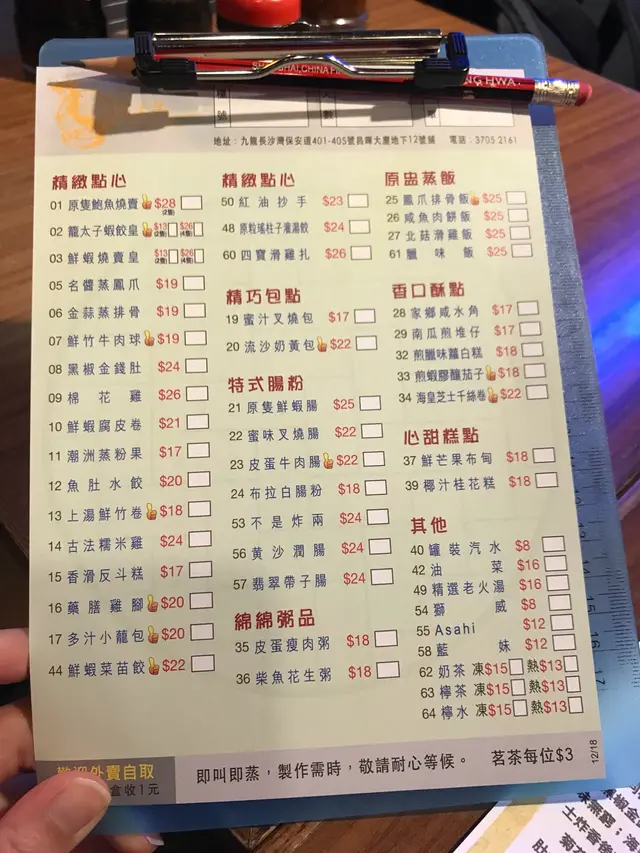 SHANGHAI CHINA
NG HWA
地址：九龍長沙灣保安道401-405號昌暉大廈地下12號舖 電話：3705 2161
精緻點心
01 原隻鮑魚燒賣 $28 (2隻)
02 龍太子蝦餃皇 $13 (2隻) $26 (4隻)
03 鮮蝦燒賣皇 $13 (2隻) $26 (4隻)
05 名醬蒸鳳爪 $19
06 金蒜蒸排骨 $19
07 鮮竹牛肉球 $19
08 黑椒金錢肚 $24
09 棉花雞 $26
10 鮮蝦腐皮卷 $21
11 潮洲蒸粉果 $17
12 魚肚水餃 $20
13 上湯鮮竹卷 $18
14 古法糯米雞 $24
15 香滑反斗糕 $17
16 藥膳雞腳 $20
17 多汁小龍包 $20
44 鮮蝦菜苗餃 $22
精緻點心
50 紅油抄手 $23
48 原粒瑤柱子灌湯餃 $24
60 四寶滑雞扎 $26
精巧包點
19 蜜汁叉燒包 $17
20 流沙奶黃包 $22
特式腸粉
21 原隻鮮蝦腸 $25
22 蜜味叉燒腸 $22
23 皮蛋牛肉腸 $22
24 布拉白腸粉 $18
53 不是炸兩 $24
56 黄沙潤腸 $24
57 翡翠帶子腸 $24
綿綿粥品
35 皮蛋瘦肉粥 $18
36 柴魚花生粥 $18
原盅蒸飯
25 鳳爪排骨飯 $25
26 咸魚肉餅飯 $25
27 北菇滑雞飯 $25
61 臘味飯 $25
香口酥點
28 家鄉咸水角 $17
29 南瓜煎堆仔 $17
32 煎臘味蘿白糕 $18
33 煎蝦膠釀茄子 $18
34 海皇芝士千絲卷 $22
心甜糕點
37 鮮芒果布甸 $18
39 椰汁桂花糕 $18
其他
40 罐裝汽水 $8
42 油菜 $16
49 精選老火湯 $16
54 獅威 $8
55 Asahi $12
58 藍妹 $12
62 奶茶 凍$15 熱$13
63 檸茶 凍$15 熱$13
64 檸水 凍$15 熱$13
歡迎外賣自取
盒收1元
即叫即蒸，製作需時，敬請耐心等候。 茗茶每位$3
12/18